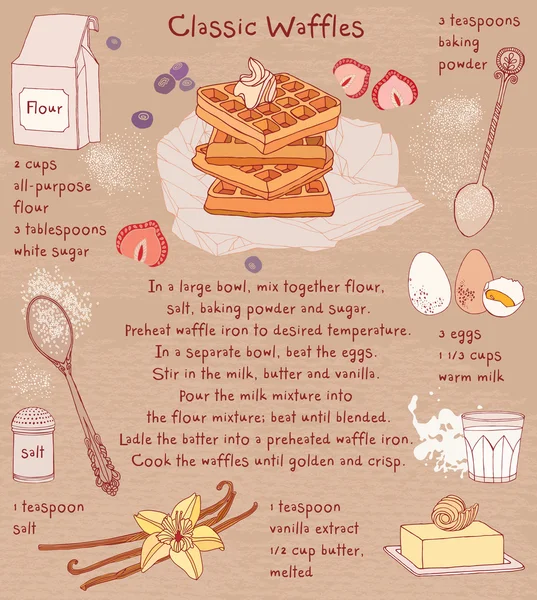 Classic Waffles
3 teaspoons
baking
powder
Flour
2 cups
all-purpose
flour
3 tablespoons
white sugar
In a large bowl, mix together flour,
salt, baking powder and sugar.
Preheat waffle iron to desired temperature.
In a separate bowl, beat the eggs.
Stir in the milk, butter and vanilla.
Pour the milk mixture into
the flour mixture; beat until blended.
Ladle the batter into a preheated waffle iron.
Cook the waffles until golden and crisp.
3 eggs
1 1/3 cups
warm milk
salt
1 teaspoon
salt
1 teaspoon
vanilla extract
1/2 cup butter,
melted